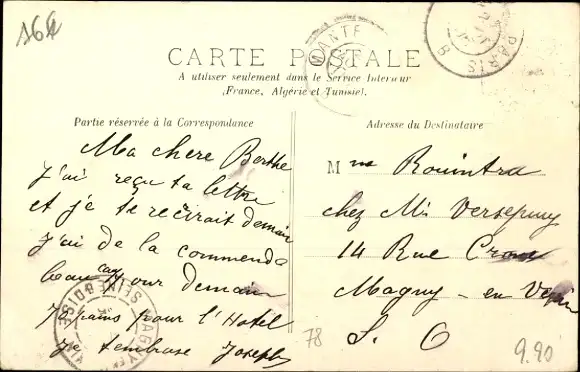 164
CARTE POSTALE
A utiliser seulement dans le Service Interieur
(France, Algérie et Tunisie).
Partie réservée à la Correspondance
Ma chere Berthe
J'ai reçu ta lettre
et je te recirait demain
j'ai de la commenda
beaucoup pour demain
78 pains pour l'Hotel
je t'embrase Joseph
Adresse du Destinataire
Mme Rouintra
chez Mr Versepuy
14 Rue
Magny - en Vexin
S. O
78
9.90
PARIS
MANTE
SEINE & OISE